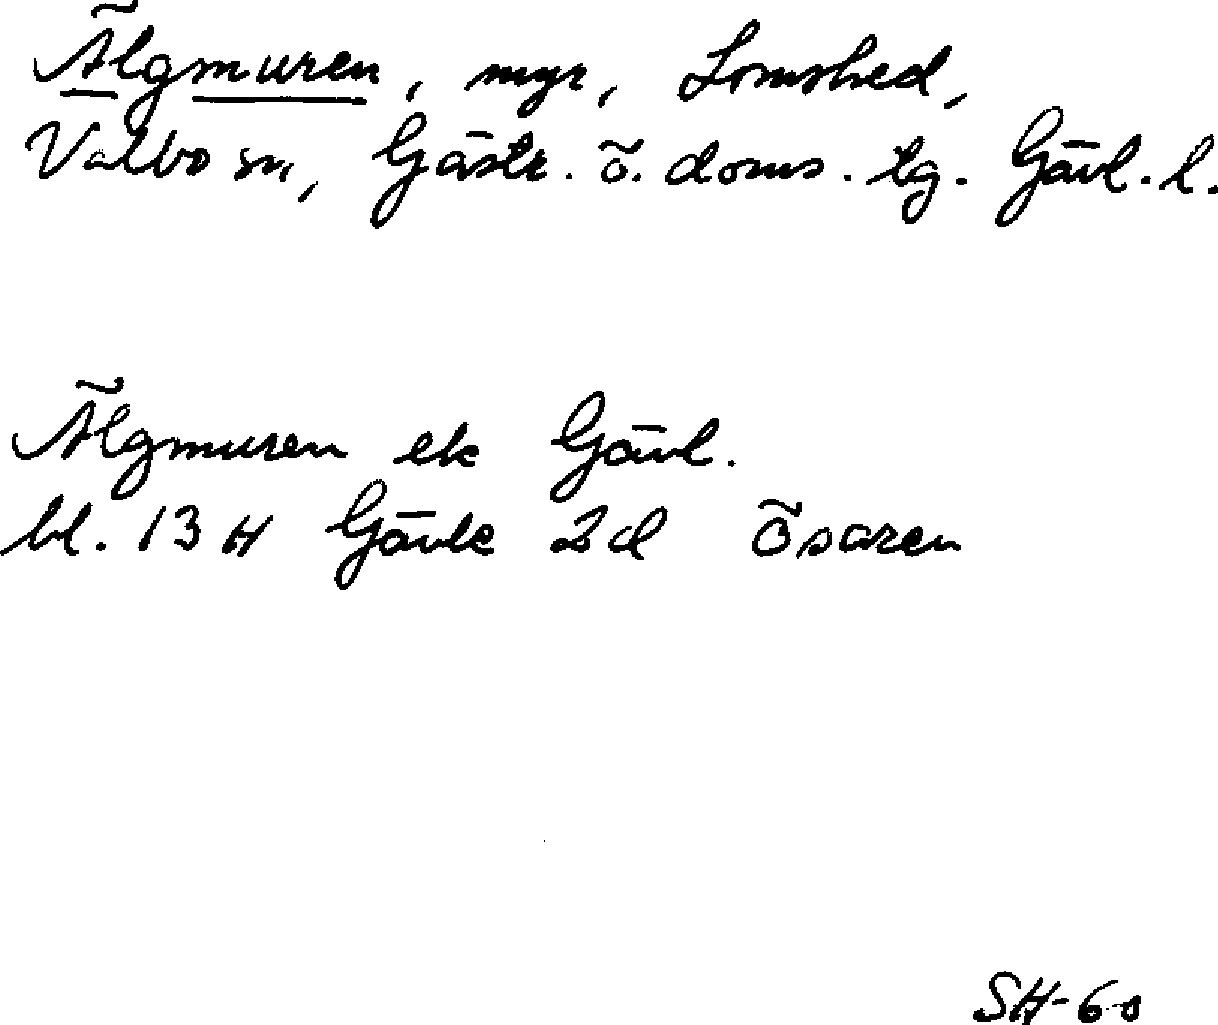 Älgmuren, myr, Lomshed,
Valbo sn, Gästr. ö. doms. tg. Gävl. l.
Älgmuren ek Gävl.
bl. 13 H Gävle 2d Ösaren
SH-60